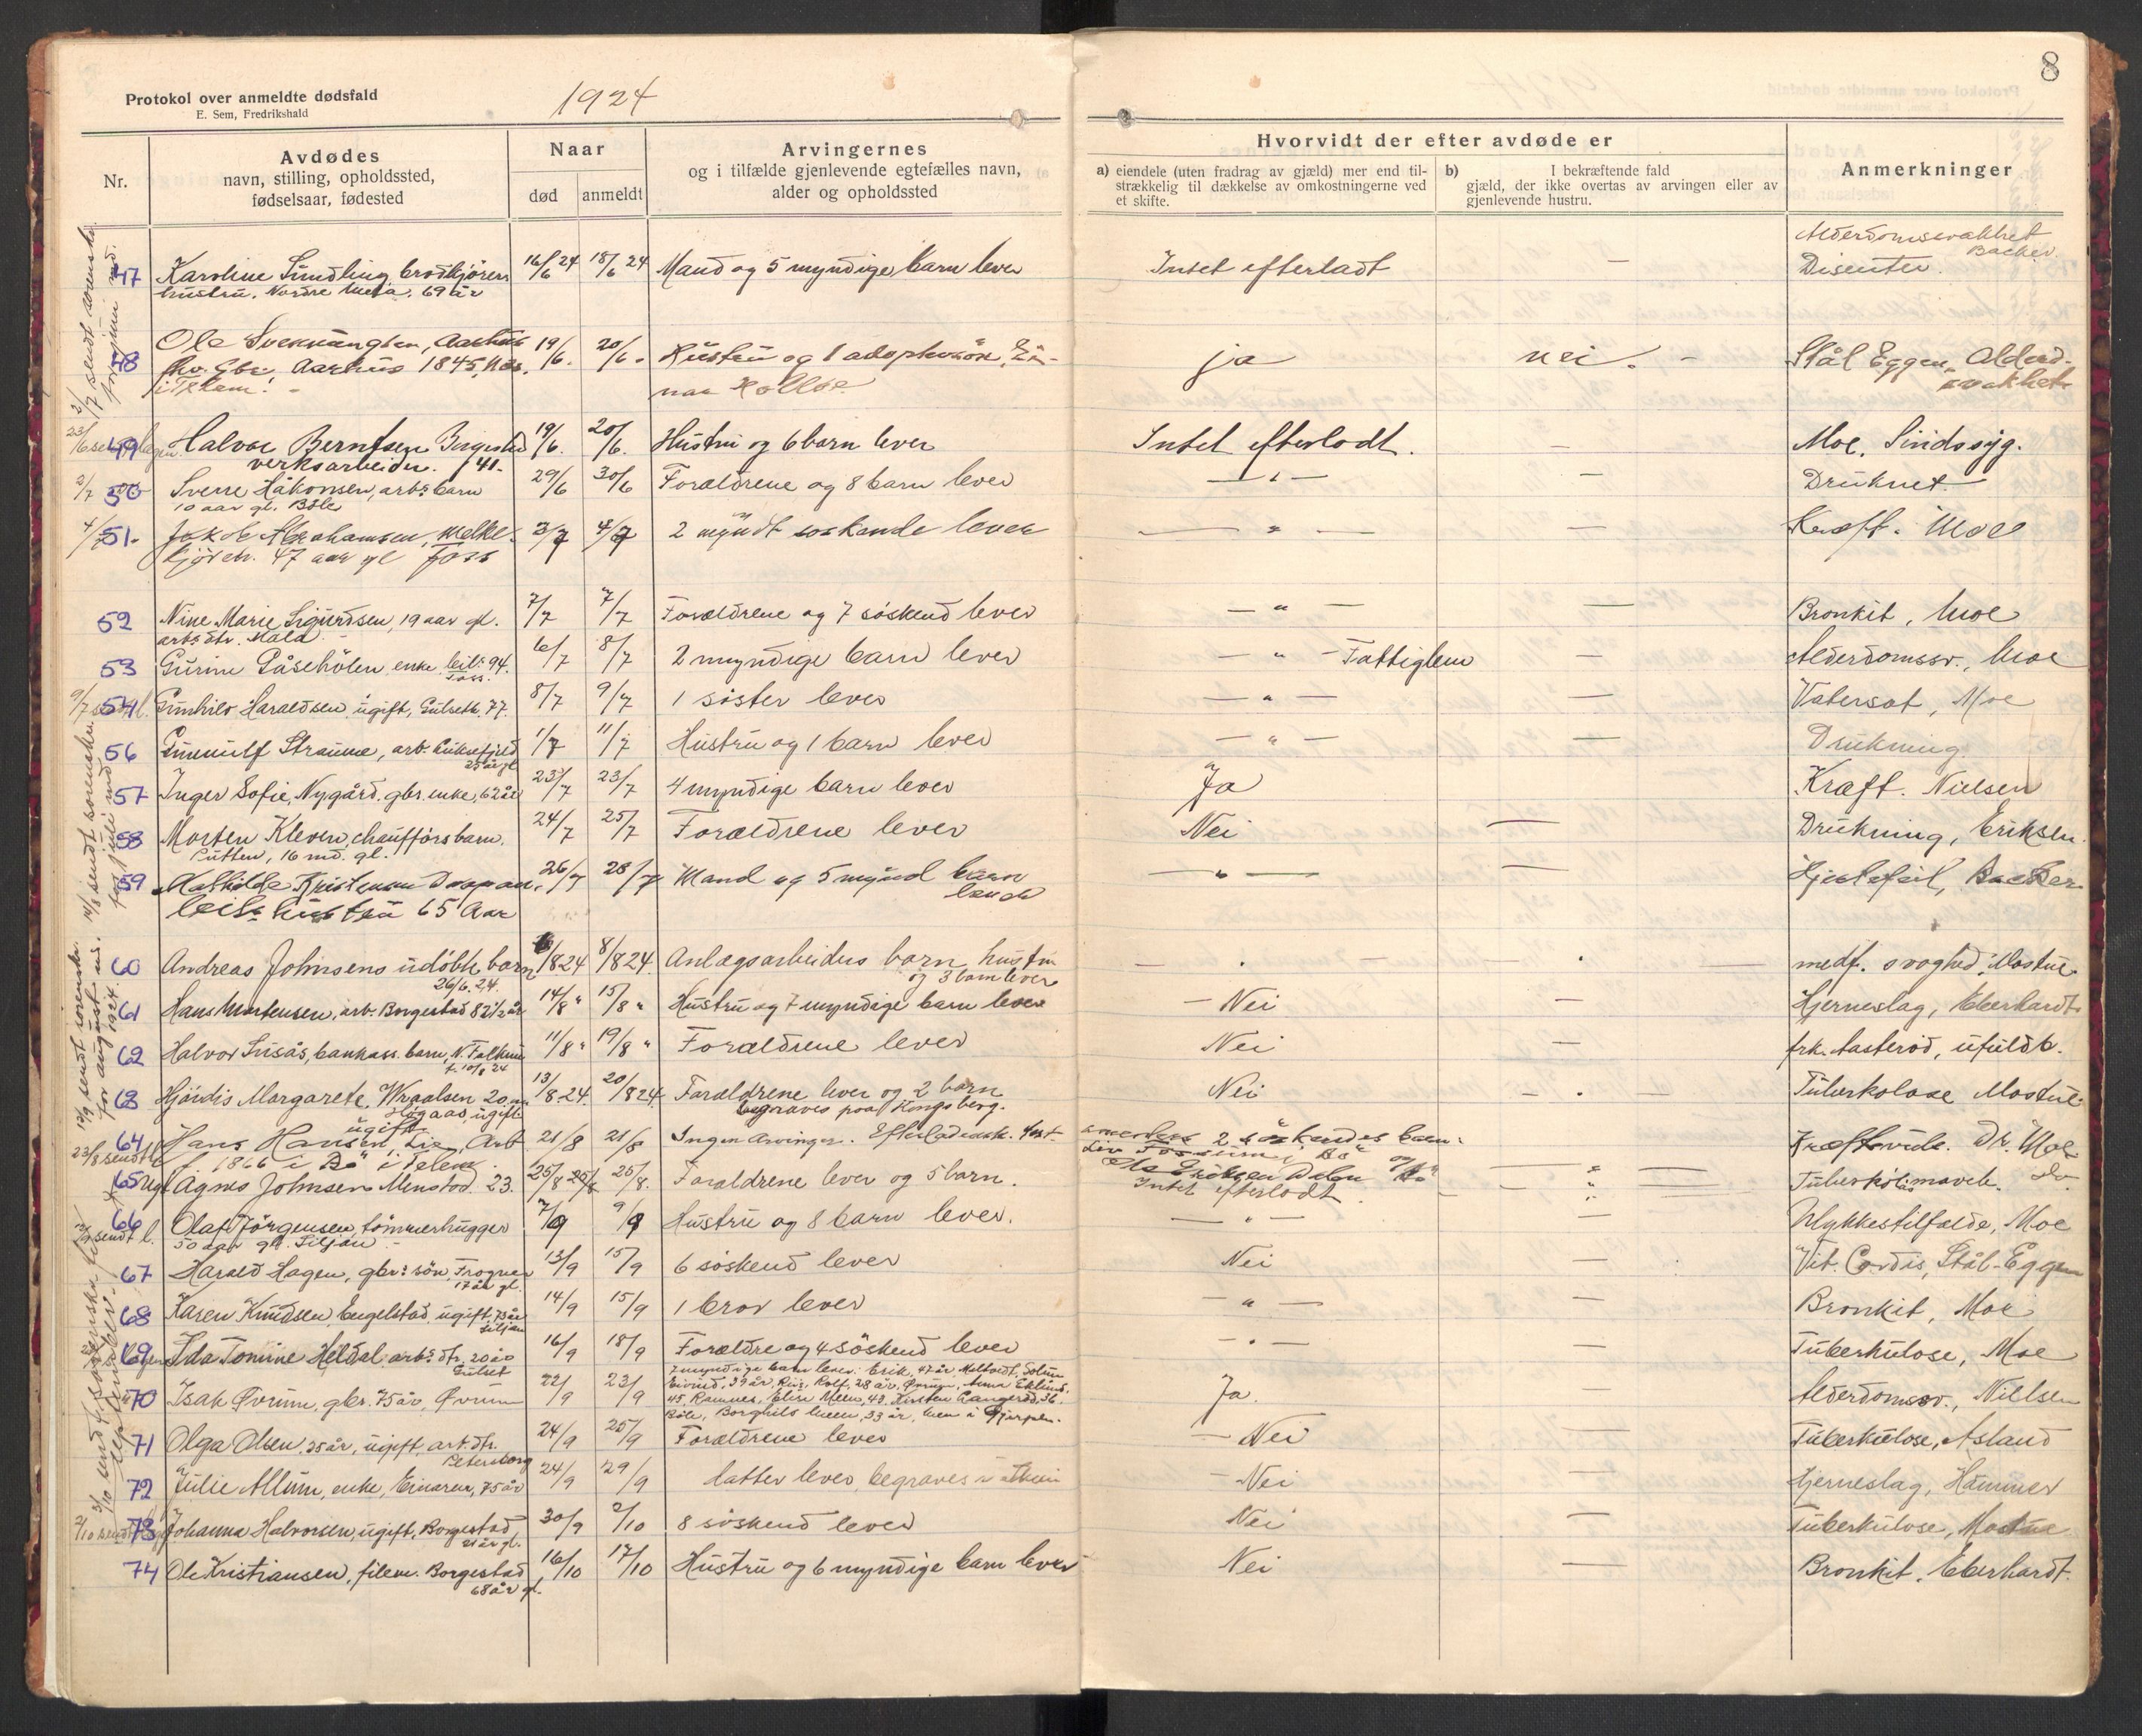 8
Protokol over anmeldte dødsfald
E. Sem, Fredrikshald
1924
Nr.
Avdødes
navn, stilling, opholdssted,
fødselsaar, fødested
Naar
død
anmeldt
Arvingernes
og i tilfælde gjenlevende egtefælles navn,
alder og opholdssted
Hvorvidt der efter avdøde er
a) eiendele (uten fradrag av gjæld) mer end til-
strækkelig til dækkelse av omkostningerne ved
et skifte.
b) I bekræftende fald
gjæld, der ikke overtas av arvingen eller av
gjenlevende hustru.
Anmerkninger
47 Karoline Sundling brødkjørers 16/6 24 18/6 24 Mand og 5 myndige barn lever Intet efterladt — Alderdomssvakhet Backer
hustru. Nordre 69 år Disenter.
48 Ole 19/6. 20/6. Hustru og 1 adoptivsön, Ei- ja nei. Stål Eggen, Alderd.
Aarhus 1845, nar svakhet
49 Halvor Berntsen Borgestad 19/6. 20/6. Hustru og 6 barn lever Intet efterlodt. — Moe, Sindssyg.
verksarbeider. 41.
2/7 50 Sverre Håkonsen, arbs barn 29/6 30/6 Forældrene og 8 barn lever — " — — Druknet
10 aar gl. Böle
4/7 51. Jakob Abrahamsen, melke- 3/7 4/7 2 myndt søskende lever — " — — Kræft. Moe
kjörer. 47 aar gl Foss
52 Nine Marie Sigurdsen, 19 aar gl. 7/7 7/7 Forældrene og 7 söskend lever — " — — Bronkit, Moe
arbs dtr. Mæla
53 Gurine Gåsehölen enke 94. 6/7 8/7 2 myndige barn lever — " — Fattiglem — Alderdomssv., Moe
Foss.
54 Gunhild Haraldsen, ugift, Gulseth. 77. 8/7 9/7 1 söster lever — " — — Vatersot, Moe
56 Gunnulf Straume, arb. Luksefjeld 1/7 11/7 Hustru og 1 barn lever — " — — Drukning
25 år gl
57 Inger Sofie Nygård. gbr. enke, 62 år 23/7 23/7 4 myndige barn lever Ja Kræft. Nielsen
58 Morten Kleven, chauffórs barn. 24/7 25/7 Forældrene lever Nei — Drukning, Eriksen.
16 md. gl.
59 Mathilde Kristensen 26/7 28/7 Mand og 5 mynd barn — " — — Hjertefeil, Backer
hustru 65 Aar lever
60 Andreas Johnsens udöbte barn 1/8 24 8/8 24. Anlægsarbeiders barn, hustru — . — . medf. svaghed, Mostue
26/6.24. og 3 barn lever
61 Hans Mortensen, arb. Borgestad 82½ år 14/8 " 15/8 " Hustru og 7 myndige barn lever — Nei — Hjerneslag, Eberhardt
62 Halvor Lusås, bankass. barn, N. Falkum 11/8 " 19/8 " Forældrene lever Nei — frk. Aasteröd, ufuldb.
f. 10/8 24
63 Hjördis Margarete Wraalsen 20 13/8.24. 20/8 24. Forældrene lever og 2 barn Nei — . — Tuberkolose Mostue
ugift begraves paa Kongsberg.
64 Hans Hansen Lie, Arb. ugift 21/8 21/8 Ingen Arvinger. 2 söskendes barn.
f. 1866 i Bö i Telem. Kræftsvulst. Dr. Moe
65 Agnes Johnsen Menstad. 23. 25/8 25/8. Forældrene lever og 5 barn. Intet efterlodt — " — do
66 Olaf Jörgensen, tömmerhugger 7/9 9/9 Hustru og 8 barn lever. — " — — Ulykkestilfælde, Moe
50 aar gl. Siljan
67 Harald Hagen, gbrs sön, Frogner 13/9 15/9 6 söskend lever Nei — Vit. Cordis, Stål-Eggen
17 år gl.
68 Karen Knudsen, Engelstad, ugift, 73 år 14/9 15/9 1 bror lever — " — — Bronkit, Moe
Siljan
69 Ida Tomine Heldal arbs dtr, 20 år 16/9 18/9 Forældre og 4 söskend lever — " — — Tuberkulose, Moe
Gulset
70 Isak Øvrum, gbr. 75 år, Øvrum 22/9 23/9 7 myndige barn lever: Erik, 47 år, Solum Ja. — Alderdomssv., Nielsen
Eivind, 39 år, Rolf, 28 år, Øvrum, Anna Eklund,
45, Ramnes, Elise Moen, 43, Kirsten 36,
Böle, Borghild Moen, 33 år, i Gjerpen.
71 Olga Olsen, 25 år, ugift, arb. dtr. 24/9 25/9 Forældrene lever — Nei — Tuberkulose, Asland
Petersborg
72 Julie Allum, enke, Einaren, 75 år 24/9 29/9 datter lever, begraves — Nei — Hjerneslag, Hammer
73 Johanna Halvorsen, ugift, Borgestad, 30/9 2/10 8 söskend lever Nei — Tuberkulose, Mostue
21 år gl.
74 Ole Kristiansen, filem. Borgestad 16/10 17/10 Hustru og 6 myndige barn lever Nei — Bronkit. Eberhardt.
68 år gl.